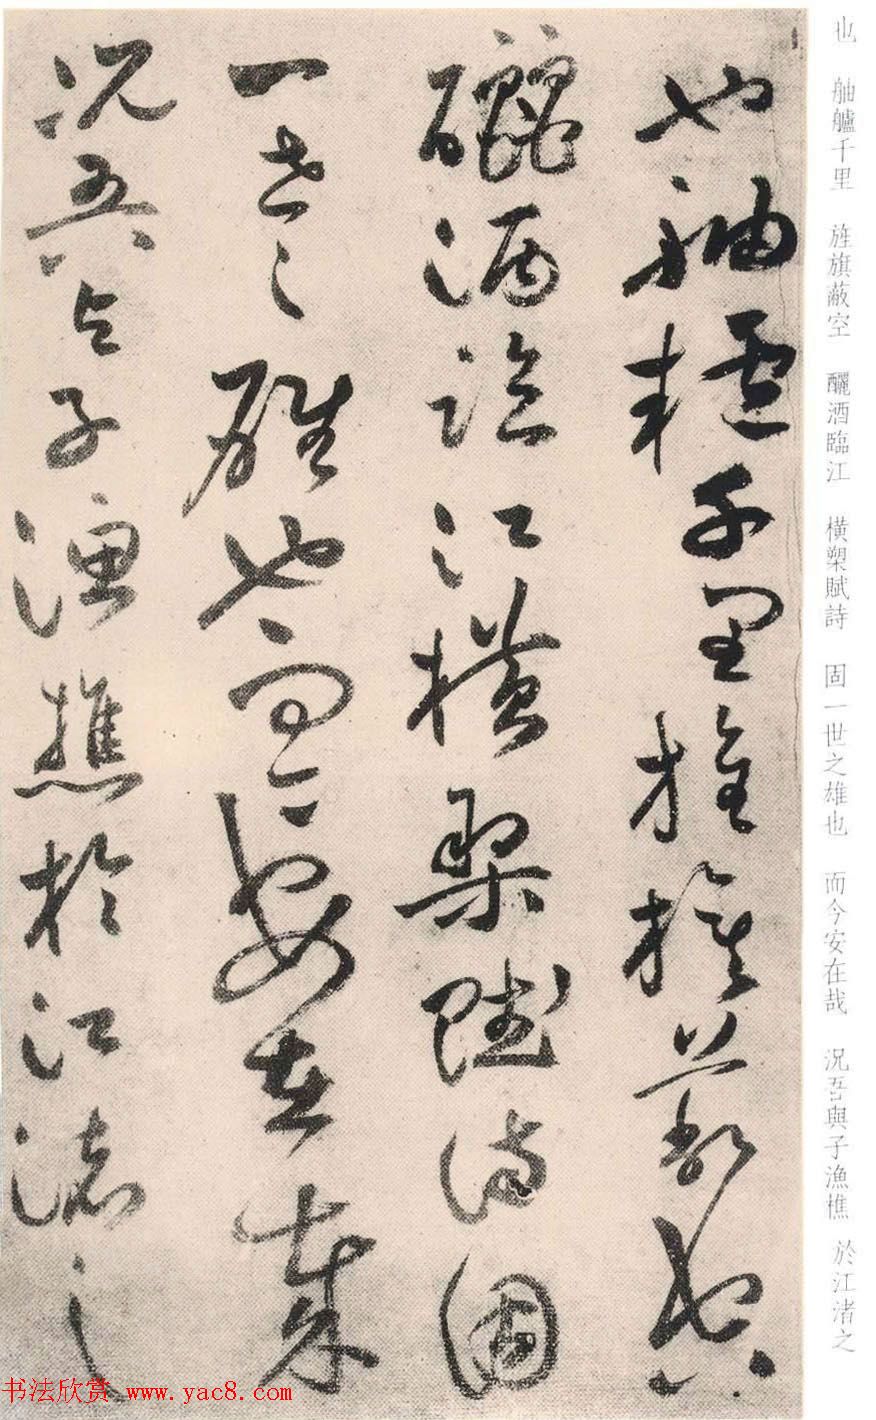 也 舳艫千里 旌旗蔽空 釃酒臨江 橫槊賦詩 固一世之雄也 而今安在哉 況吾與子漁樵 於江渚之
也舳艫千里旌旗蔽空
釃酒臨江橫槊賦詩固
一世之雄也而今安在哉
況吾與子漁樵於江渚之
书法欣赏 www.yac8.com